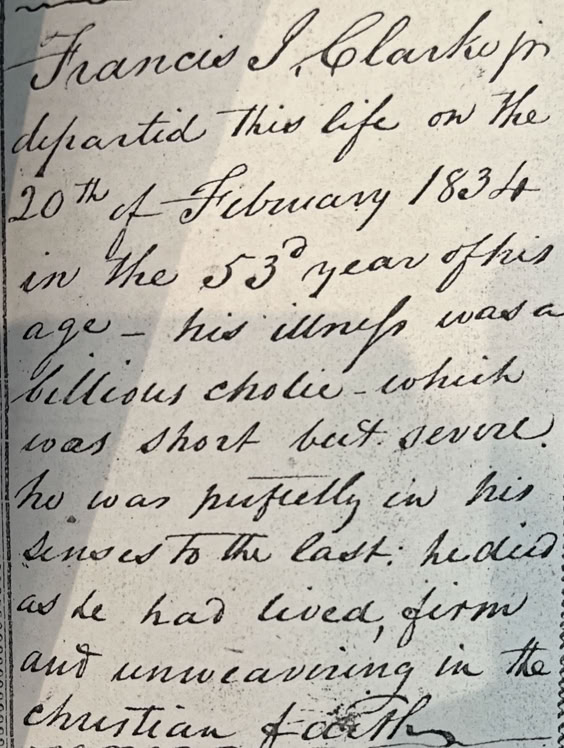 Francis J. Clarke jr
departed this life on the
20th of February 1834
in the 53d year of his
age – his illness was a
billious cholic – which
was short but severe.
he was perfectly in his
senses to the last: he died
as he had lived, firm
and unweavining in the
christian faith